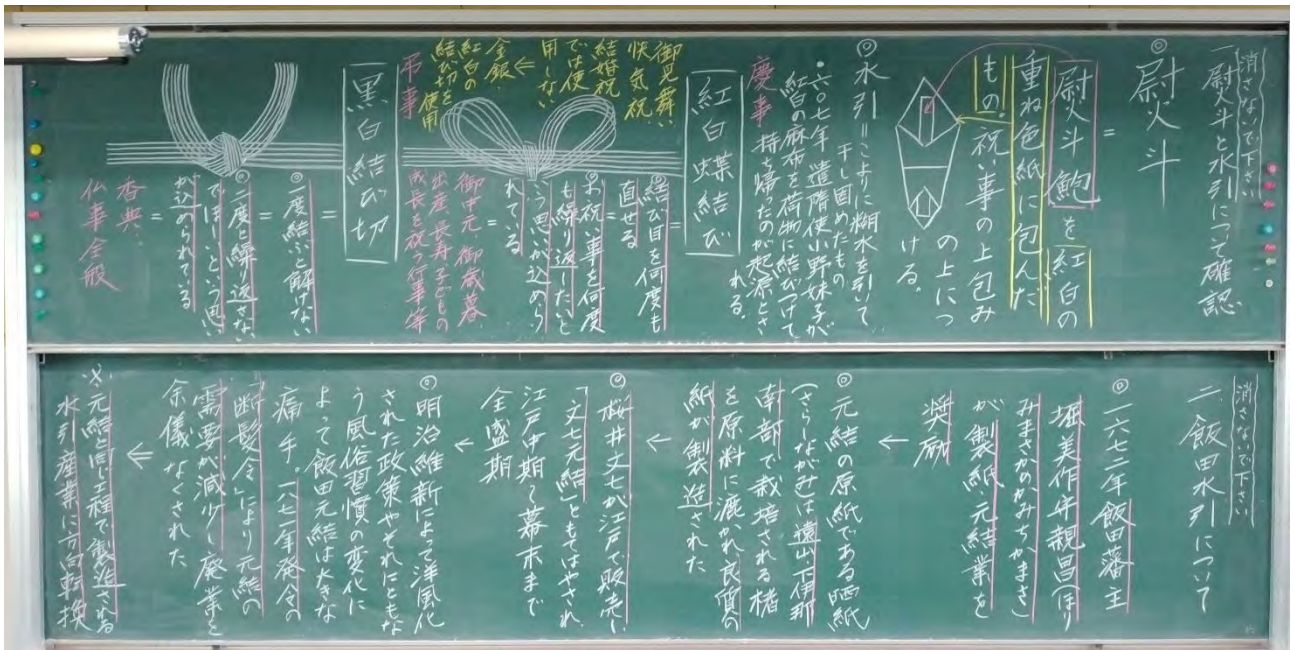 消さないで下さい
一尉火斗と水引について確認
◎尉火斗
=
尉火斗鮑を紅白の
重ね色紙に包んだ
もの。祝い事の上包み
の上につ
ける。
◎水引=こよりに糊水を引いて、
干し固めたもの
・六〇七年遣隋使小野妹子が
紅白の麻布を荷物に結びつけて
持ち帰ったのが起源とさ
れる。
慶事
紅白蝶結び
=
結び目を何度も
直せる
=
お祝い事を何度
も繰り返したいと
いう思いが込めら
れている
=
御中元・御歳暮・
出産・長寿・子どもの
成長を祝う行事等
御見舞い
快気祝
結婚祝
では使
用しない
←
金銀・
紅白の
結び切を
使用
弔事
黒白結び切
=
一度結ぶと解けない
=
二度と繰り返さない
でほしいという思い
が込められている
=
香典・
仏事全般
消さないで下さい
二、飯田水引について
◎一六七二年飯田藩主
堀美作守親昌(ほり
みまさかのかみちかまさ)
が製紙・元結業を
奨励
←
◎元結の原紙である晒紙
(さらしながみ)は遠山・下伊那
南部で栽培される楮
を原料に漉かれ良質の
紙が製造された
←
◎桜井文七が江戸で販売し
「文七元結」ともてはやされ、
江戸中期〜幕末まで
全盛期
←
◎明治維新によって洋風化
された政策やそれにともな
う風俗習慣の変化に
よって飯田元結は大きな
痛手。一八七一年発令の
「断髪令」により元結の
需要が減少し廃業を
余儀なくされた
⇐
※元結と同じ工程で製造される
水引産業に方向転換